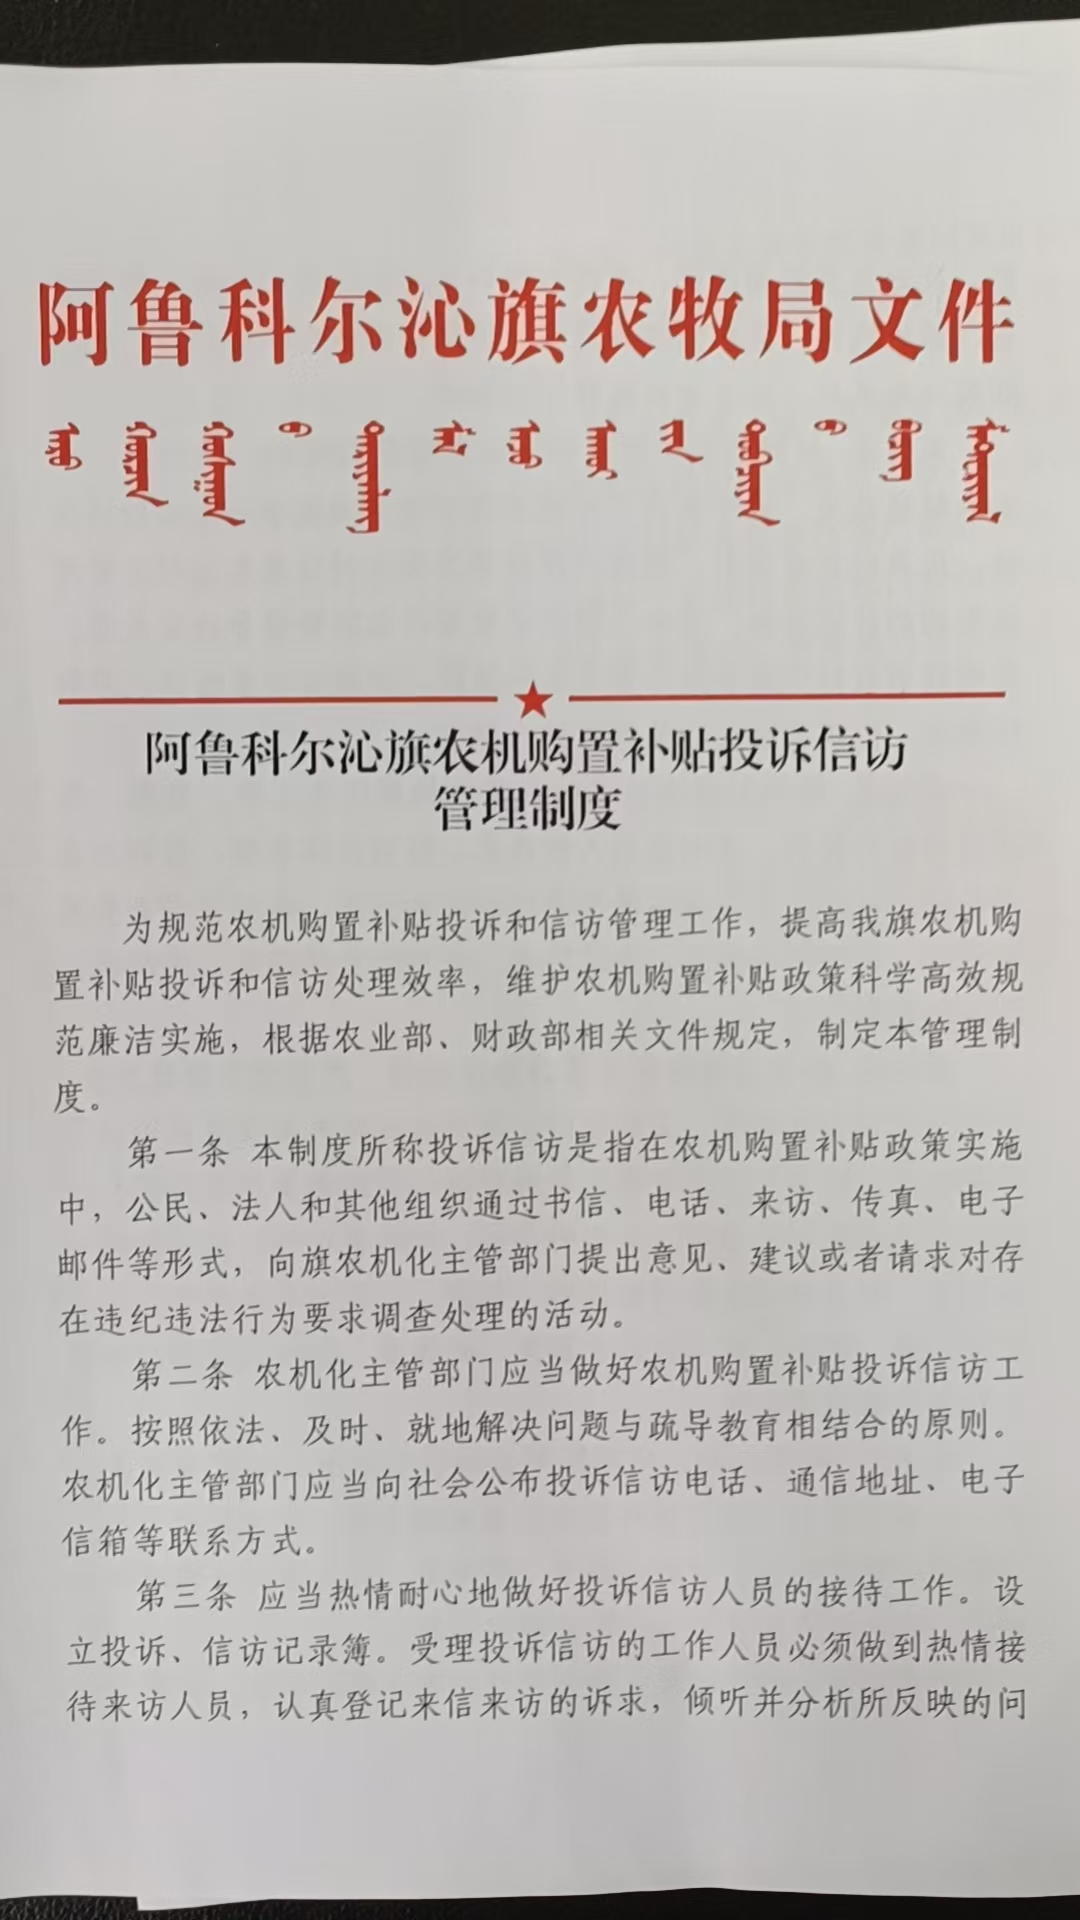 阿鲁科尔沁旗农牧局文件
阿鲁科尔沁旗农机购置补贴投诉信访
管理制度
为规范农机购置补贴投诉和信访管理工作，提高我旗农机购
置补贴投诉和信访处理效率，维护农机购置补贴政策科学高效规
范廉洁实施，根据农业部、财政部相关文件规定，制定本管理制
度。
第一条 本制度所称投诉信访是指在农机购置补贴政策实施
中，公民、法人和其他组织通过书信、电话、来访、传真、电子
邮件等形式，向旗农机化主管部门提出意见、建议或者请求对存
在违纪违法行为要求调查处理的活动。
第二条 农机化主管部门应当做好农机购置补贴投诉信访工
作。按照依法、及时、就地解决问题与疏导教育相结合的原则。
农机化主管部门应当向社会公布投诉信访电话、通信地址、电子
信箱等联系方式。
第三条 应当热情耐心地做好投诉信访人员的接待工作。设
立投诉、信访记录簿。受理投诉信访的工作人员必须做到热情接
待来访人员，认真登记来信来访的诉求，倾听并分析所反映的问